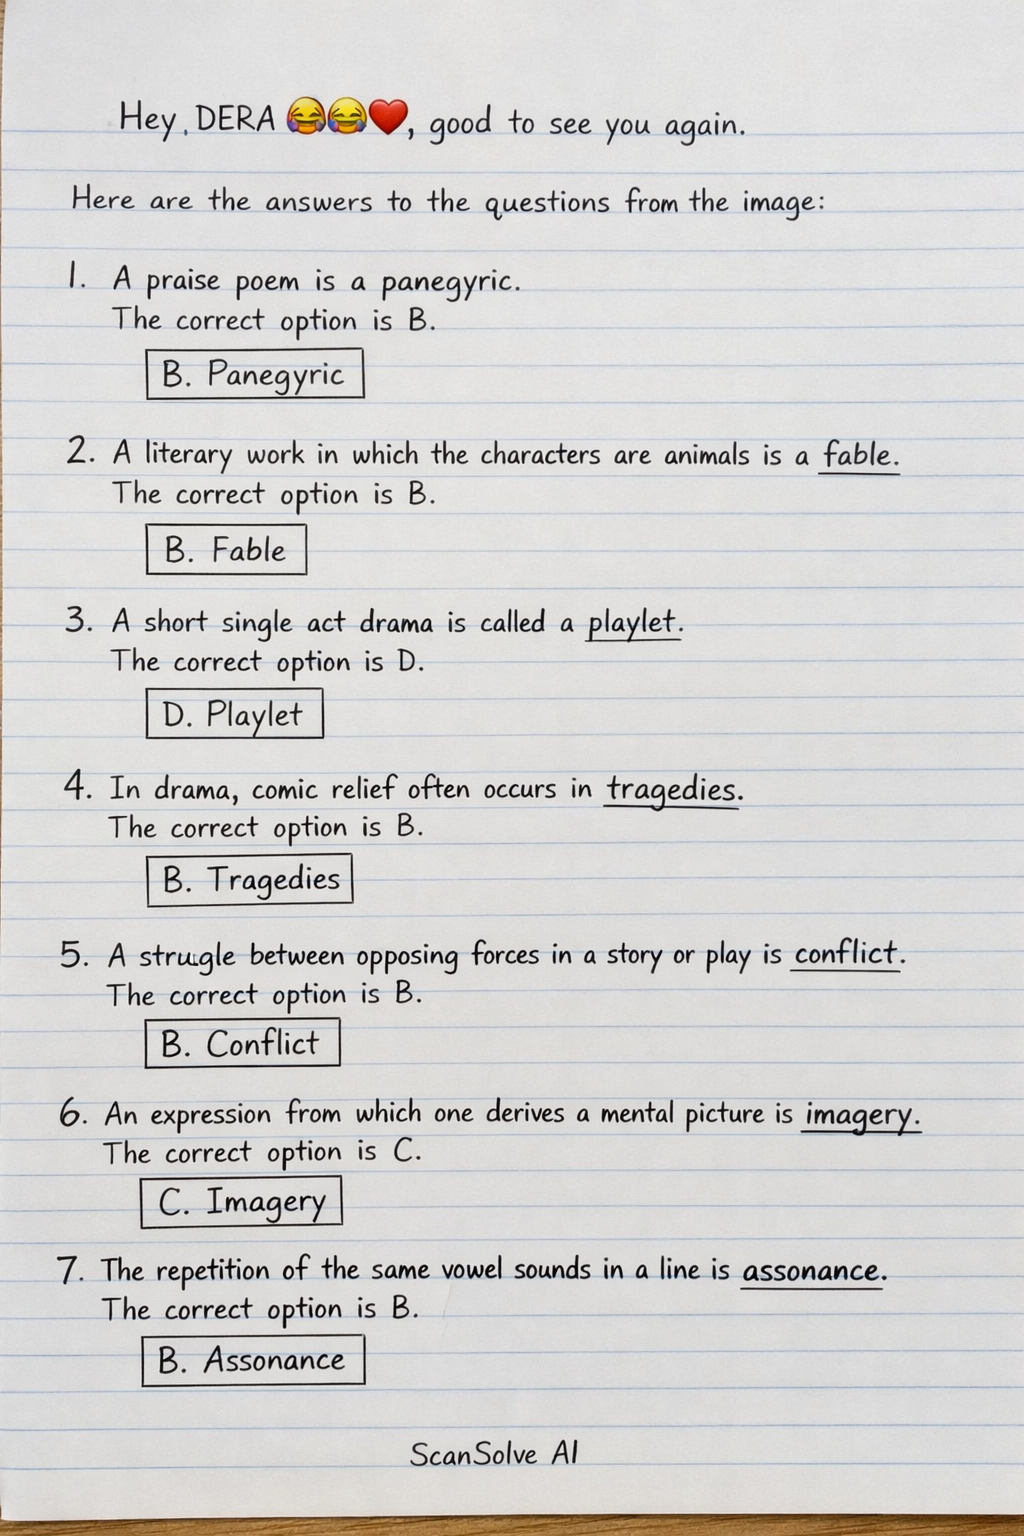 Hey, DERA 😂😂❤️, good to see you again.
Here are the answers to the questions from the image:
1. A praise poem is a panegyric.
The correct option is B.
B. Panegyric
2. A literary work in which the characters are animals is a fable.
The correct option is B.
B. Fable
3. A short single act drama is called a playlet.
The correct option is D.
D. Playlet
4. In drama, comic relief often occurs in tragedies.
The correct option is B.
B. Tragedies
5. A strugle between opposing forces in a story or play is conflict.
The correct option is B.
B. Conflict
6. An expression from which one derives a mental picture is imagery.
The correct option is C.
C. Imagery
7. The repetition of the same vowel sounds in a line is assonance.
The correct option is B.
B. Assonance
ScanSolve AI